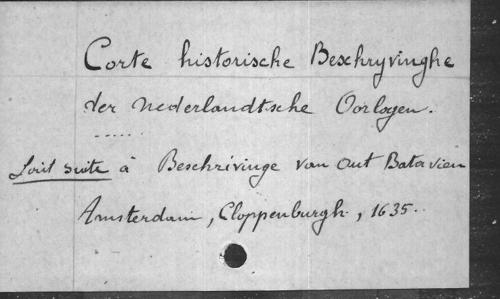 Corte historische Beschryvinghe
der Nederlandtsche Oorlogen.
.....
Fait suite à Beschrivinge van Out Batavien
Amsterdam, Cloppenburgh, 1635.